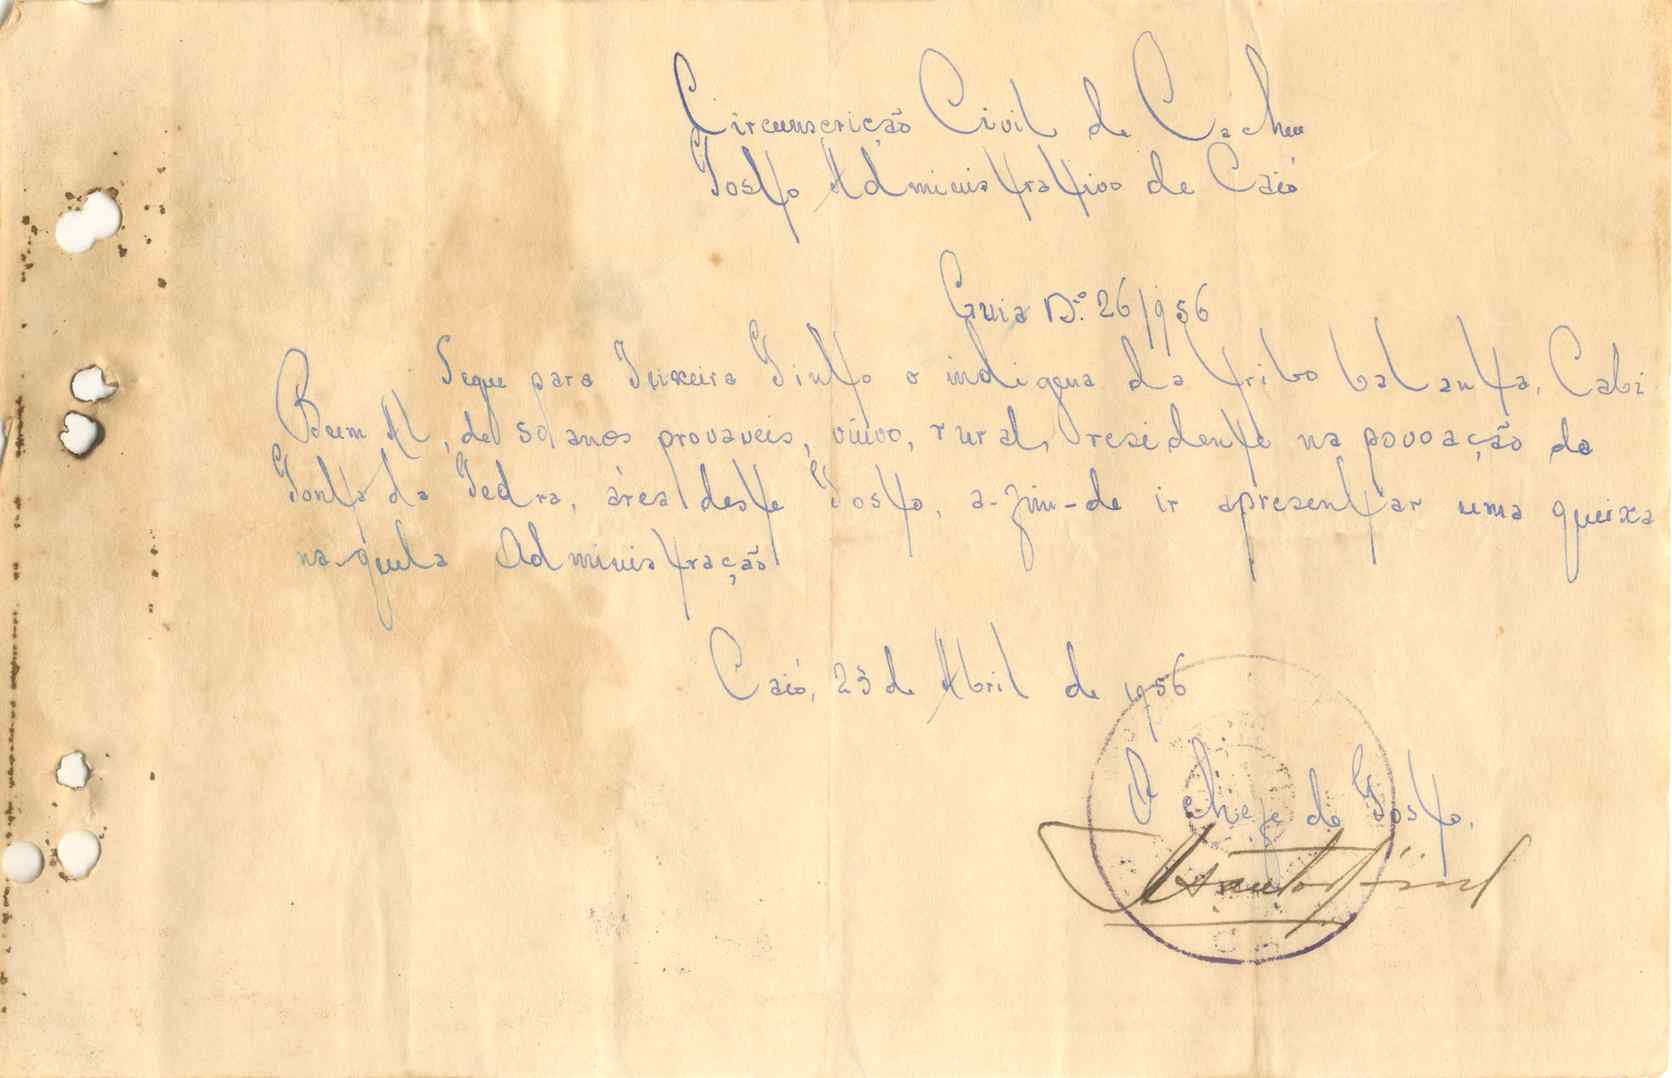 Circunscrição Civil de Cacheu
Posto Administrativo de Caió
Guia N.º 26/956
Segue para Teixeira Pinto o indigena da tribo balanta, Cabi
de 50 anos provaveis, viúvo, rural, residente na povoação de
Ponta da Pedra, área deste Posto, a-fim-de ir apresentar uma queixa
naquela Administração
Caió, 23 de Abril de 1956
O chefe de Posto.